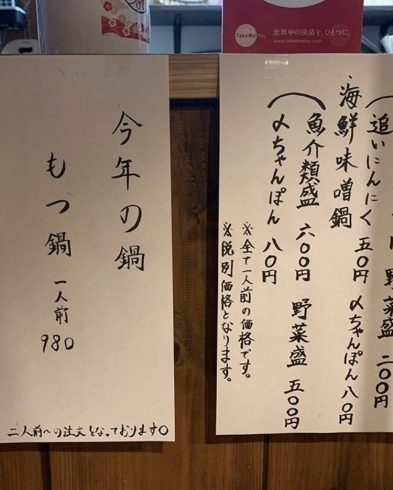 TakeMePay
世界中の決済を、ひとつに。
海鮮味噌鍋
追いにんにく 五〇円 〆ちゃんぽん 八〇円
野菜盛 二〇〇円
魚介類盛 六〇〇円 野菜盛 五〇〇円
〆ちゃんぽん 八〇円
※全て一人前の価格です。
※税別価格となります。
今年の鍋
もつ鍋 一人前 980
二人前への注文となっております。